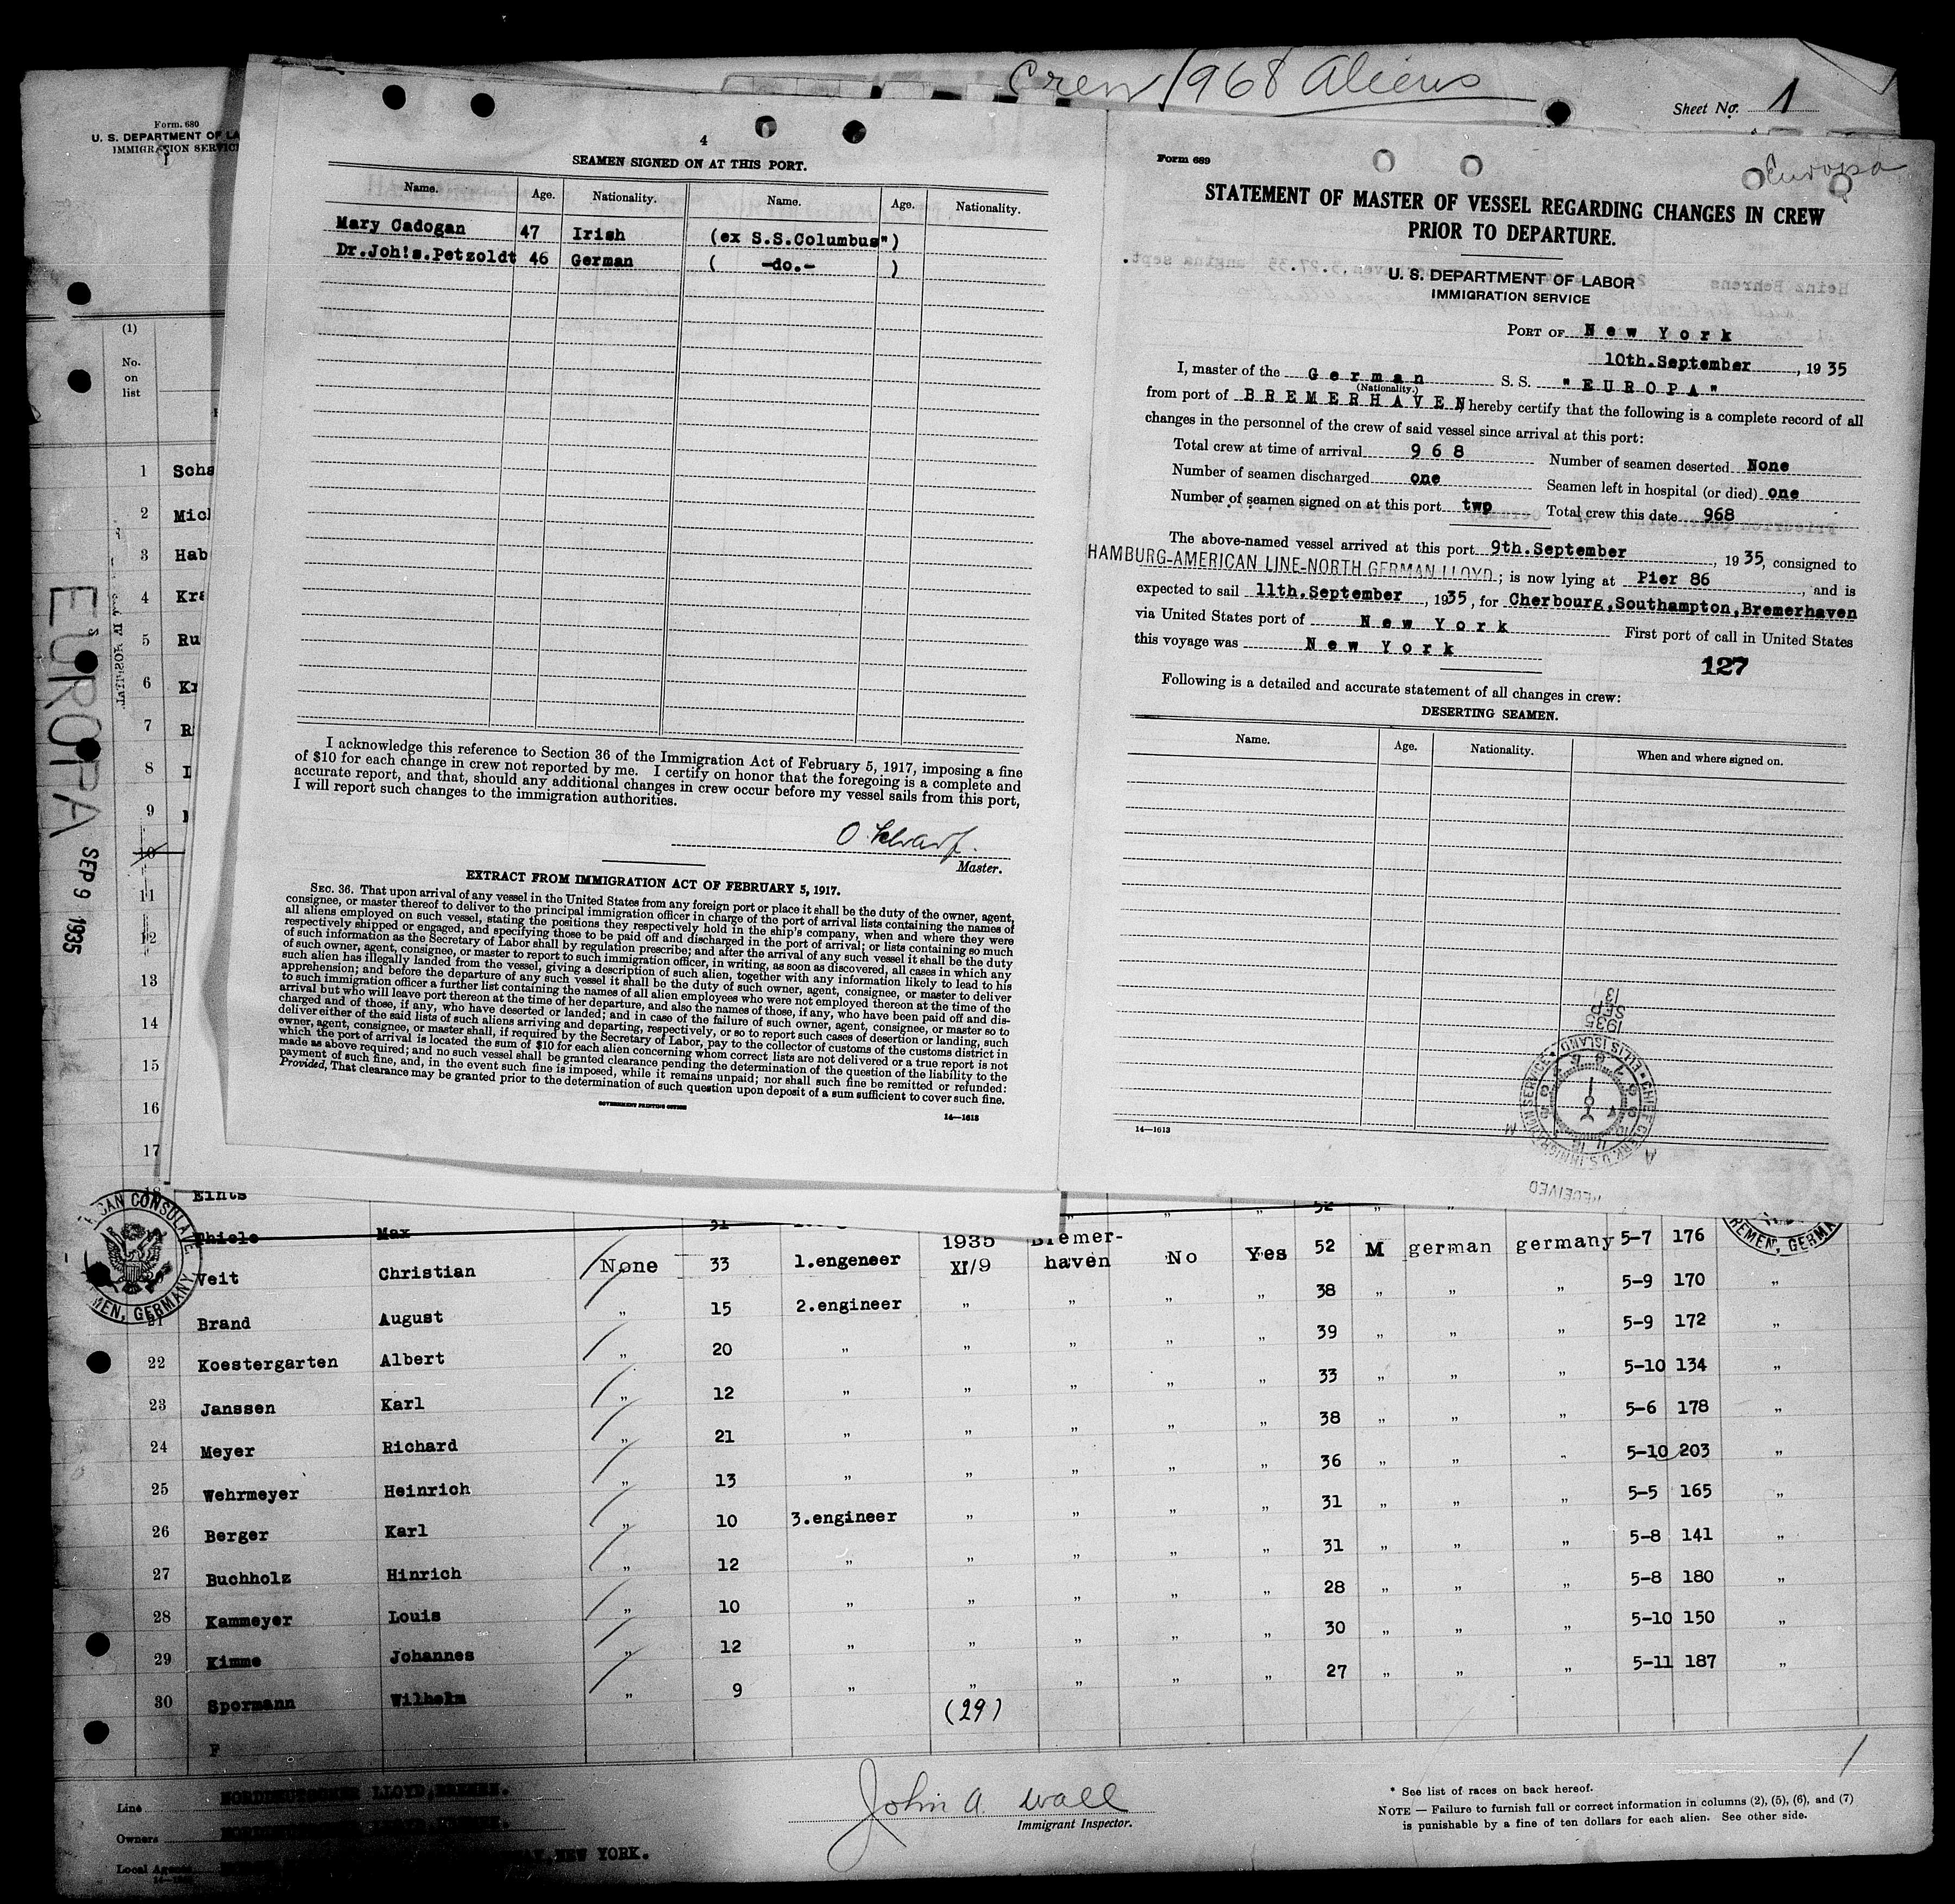 Crew 968 Aliens
Sheet No. 1
Form 680
U. S. DEPARTMENT OF LA
IMMIGRATION SERVIC
(1)
No.
on
list
1 Scha
2 Mich
3 Hab
4 Kra
5 Ru
6 Kr
7 R
8
9
10
11
12
13
14
15
16
17
EUROPA
SEP 9 1935
4
SEAMEN SIGNED ON AT THIS PORT.
Name. Age. Nationality. Name. Age. Nationality.
Mary Cadogan 47 Irish (ex S.S.Columbus")
Dr.Joh's.Petzoldt 46 German ( -do.- )
I acknowledge this reference to Section 36 of the Immigration Act of February 5, 1917, imposing a fine
of $10 for each change in crew not reported by me. I certify on honor that the foregoing is a complete and
accurate report, and that, should any additional changes in crew occur before my vessel sails from this port,
I will report such changes to the immigration authorities.
O. Scharf.
Master.
EXTRACT FROM IMMIGRATION ACT OF FEBRUARY 5, 1917.
SEC. 36. That upon arrival of any vessel in the United States from any foreign port or place it shall be the duty of the owner, agent,
consignee, or master thereof to deliver to the principal immigration officer in charge of the port of arrival lists containing the names of
all aliens employed on such vessel, stating the positions they respectively hold in the ship's company, when and where they were
respectively shipped or engaged, and specifying those to be paid off and discharged in the port of arrival; or lists containing so much
of such information as the Secretary of Labor shall by regulation prescribe; and after the arrival of any such vessel it shall be the duty
of such owner, agent, consignee, or master to report to such immigration officer, in writing, as soon as discovered, all cases in which any
such alien has illegally landed from the vessel, giving a description of such alien, together with any information likely to lead to his
apprehension; and before the departure of any such vessel it shall be the duty of such owner, agent, consignee, or master to deliver
to such immigration officer a further list containing the names of all alien employees who were not employed thereon at the time of the
arrival but who will leave port thereon at the time of her departure, and also the names of those, if any, who have been paid off and dis-
charged and of those, if any, who have deserted or landed; and in case of the failure of such owner, agent, consignee, or master so to
deliver either of the said lists of such aliens arriving and departing, respectively, or so to report such cases of desertion or landing, such
owner, agent, consignee, or master shall, if required by the Secretary of Labor, pay to the collector of customs of the customs district in
which the port of arrival is located the sum of $10 for each alien concerning whom correct lists are not delivered or a true report is not
made as above required; and no such vessel shall be granted clearance pending the determination of the question of the liability to the
payment of such fine, and, in the event such fine is imposed, while it remains unpaid; nor shall such fine be remitted or refunded:
Provided, That clearance may be granted prior to the determination of such question upon deposit of a sum sufficient to cover such fine.
GOVERNMENT PRINTING OFFICE
14—1613
Form 689
Europa
STATEMENT OF MASTER OF VESSEL REGARDING CHANGES IN CREW
PRIOR TO DEPARTURE.
U. S. DEPARTMENT OF LABOR
IMMIGRATION SERVICE
PORT OF New York
10th.September, 1935
I, master of the German S. S. "EUROPA"
(Nationality.)
from port of BREMERHAVEN, hereby certify that the following is a complete record of all
changes in the personnel of the crew of said vessel since arrival at this port:
Total crew at time of arrival 968 Number of seamen deserted None
Number of seamen discharged one Seamen left in hospital (or died) one
Number of seamen signed on at this port two Total crew this date 968
The above-named vessel arrived at this port 9th.September, 1935, consigned to
HAMBURG-AMERICAN LINE-NORTH GERMAN LLOYD; is now lying at Pier 86, and is
expected to sail 11th.September, 1935, for Cherbourg,Southampton,Bremerhaven
via United States port of New York First port of call in United States
this voyage was New York
127
Following is a detailed and accurate statement of all changes in crew:
DESERTING SEAMEN.
Name. Age. Nationality. When and where signed on.
1935
SEP
13
CHIEF CLERK U.S. IMMIGRATION SERVICE • ELLIS ISLAND
RECEIVED
14—1613
18 Eints 52
Thiele Max 31
AMERICAN CONSULATE
BREMEN, GERMANY
Veit Christian None 33 1.engeneer 1935 XI/9 Bremer-haven No Yes 52 M german germany 5-7 176
21 Brand August " 15 2.engineer " " " " 38 " " " 5-9 170 "
22 Koestergarten Albert " 20 " " " " " 39 " " " 5-9 172 "
23 Janssen Karl " 12 " " " " " 33 " " " 5-10 134 "
24 Meyer Richard " 21 " " " " " 38 " " " 5-6 178 "
25 Wehrmeyer Heinrich " 13 " " " " " 36 " " " 5-10 203 "
26 Berger Karl " 10 3.engineer " " " " 31 " " " 5-5 165 "
27 Buchholz Hinrich " 12 " " " " " 31 " " " 5-8 141 "
28 Kammeyer Louis " 10 " " " " " 28 " " " 5-8 180 "
29 Kimme Johannes " 12 " " " " " 30 " " " 5-10 150 "
30 Spormann Wilhelm " 9 " " " " " 27 " " " 5-11 187 "
(29)
F
Line NORDDEUTSCHER LLOYD,BREMEN.
Owners NORDDEUTSCHER LLOYD,BREMEN.
Local Agents NEW YORK.
John A. Wall
Immigrant Inspector.
* See list of races on back hereof.
NOTE — Failure to furnish full or correct information in columns (2), (5), (6), and (7)
is punishable by a fine of ten dollars for each alien. See other side.